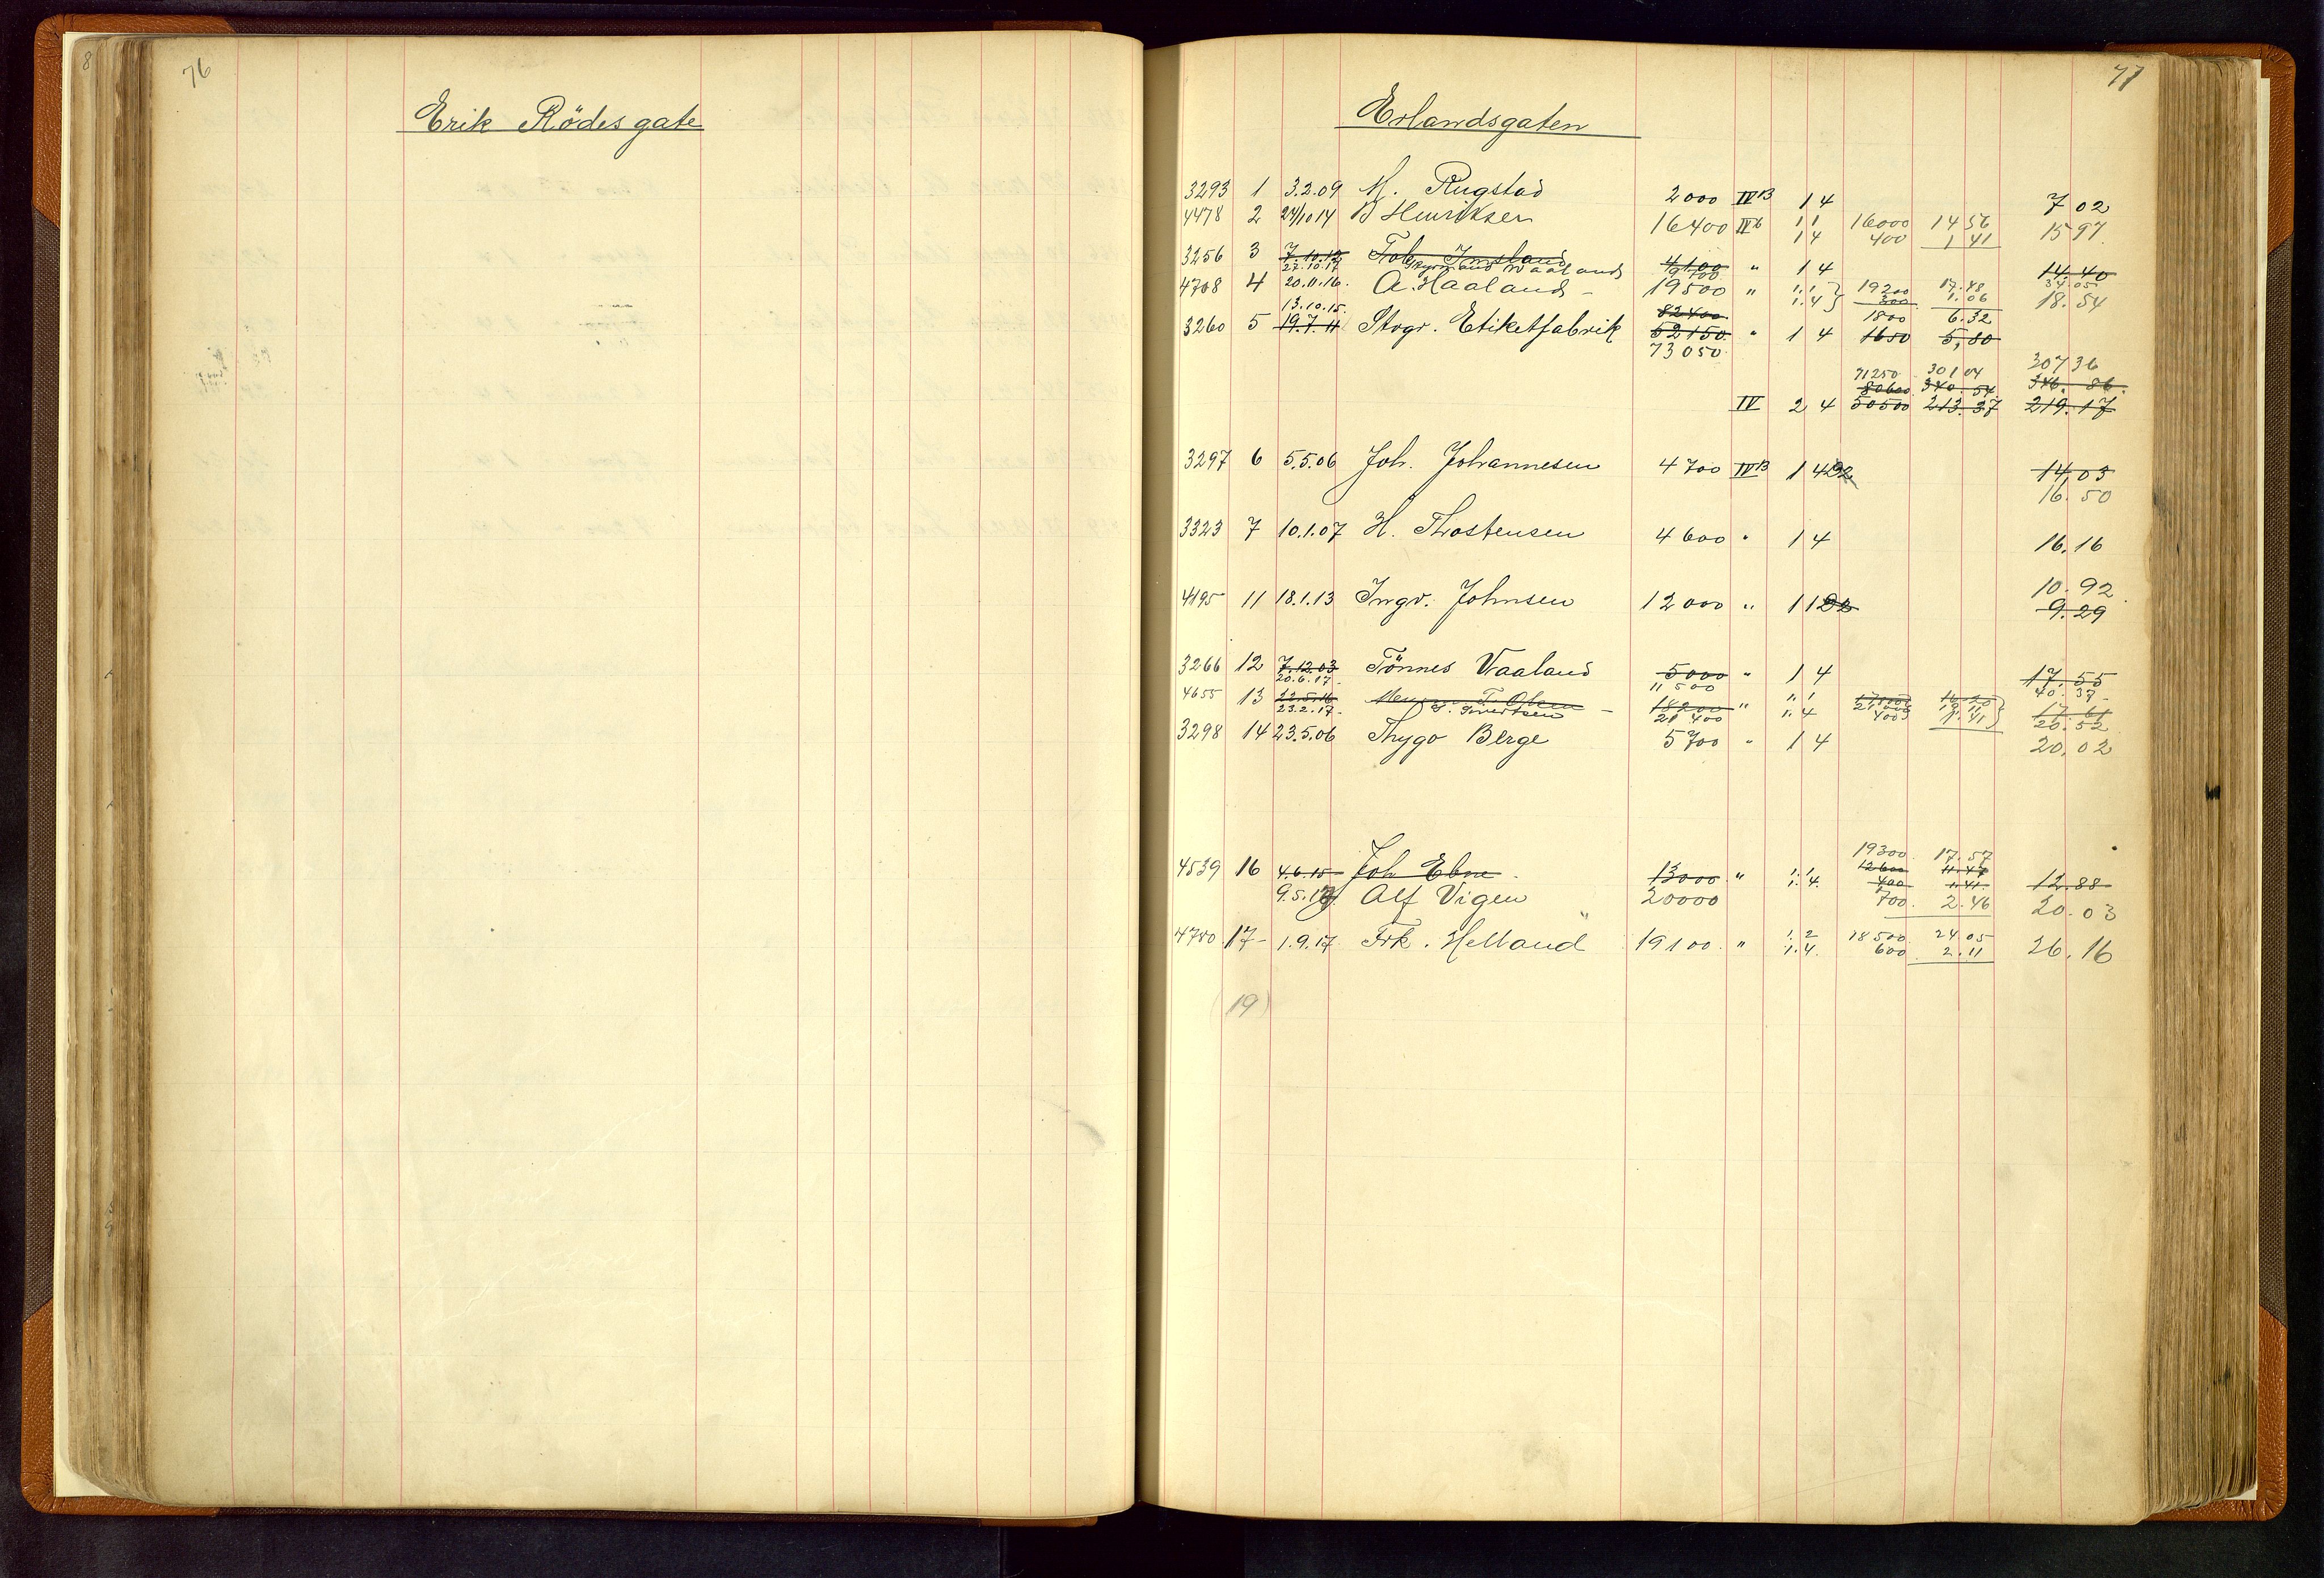 76
Erik Rödes gate
77
Erlandsgaten
3293 1 3.2.09 M. Rugstad 2000 IVB 1 4 7 02
4478 2 24/10 14 B Henriksen 16400 IVb 1 1 16000 14 56 15 97
1 4 400 1 41
3256 3 7.10.12 Tob. Imsland 4100 " 1 4 14.40
27.10.17 Waaland 9700 34.05
4708 4 20.11.16. A. Haaland - 19500 " 1.1 19200 17.48 18.54
1.4 300 1.06
13.10.15. 82400 1800 6.32
3260 5 19.7.11 Stvgr. Etiketfabrik 52150 " 1 4 1650 5,80
73050
71250 301 04 307 36
80600 340.54 346.86
IV 2 4 50500 213.37 219.17
3297 6 5.5.06 Joh. Johannesen 4700 IVB 1 4 14,03
16.50
3323 7 10.1.07 H. Thostensen 4600 " 1 4 16.16
10.92
4195 11 18.1.13 Ingv. Johnsen 12000 " 1 1 9.29
3266 12 7.12.03 Tönnes Vaaland 5000 " 1 4 17.55
20.6.17 11500 40.37
4655 13 22.5.16 T. Olsen - 18200 " 1.1 17.61
23.2.17 21400 1.4 400 1.41 20.52
3298 14 23.5.06 Thygo Berge 5700 " 1 4 20,02
19300 17.57
4539 16 4.6.15 Joh Ebne 13000 " 1.1 12600 11.47 12.88
1.4. 400 1.41
9.5.17 Alf Vigen 20000 700 2.46 20.03
4780 17- 1.9.17 Frk. Helland 19100 " 1.2 18500 24 05 26.16
1.4. 600 2.11
(19)